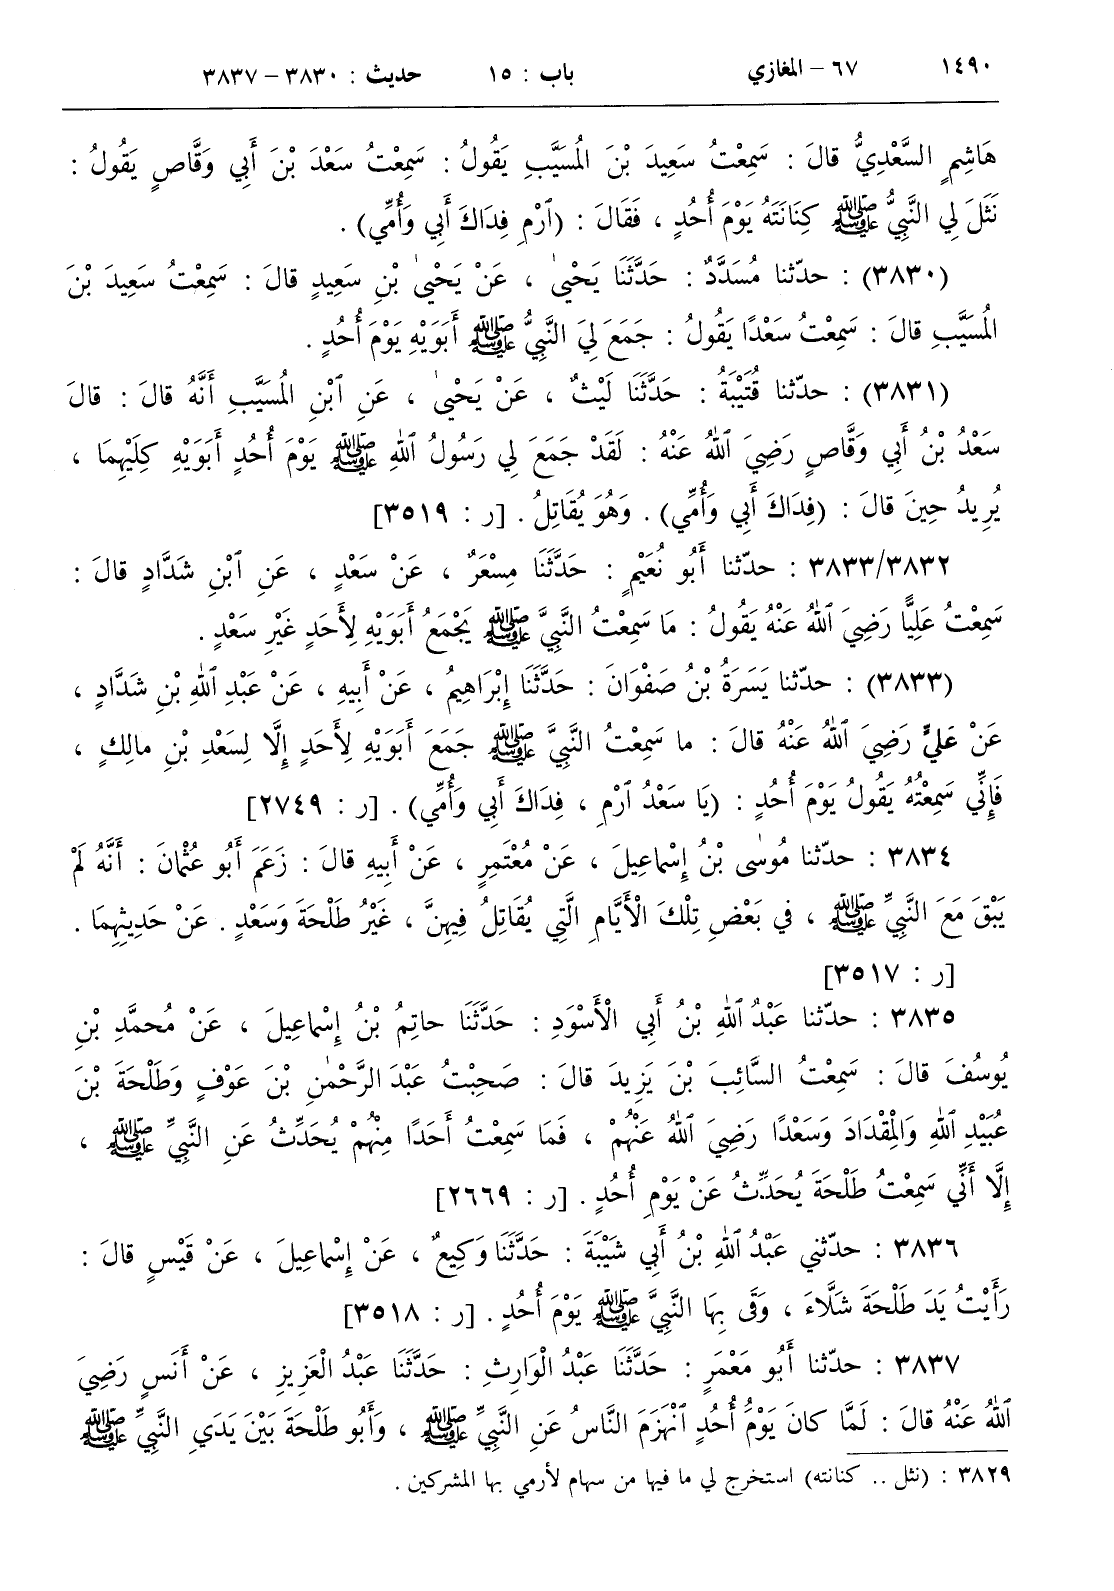 ١٤٩٠ ٦٧ – المغازي باب : ١٥ حديث : ٣٨٣٠ – ٣٨٣٧
هَاشِمٍ السَّعْدِيُّ قالَ : سَمِعْتُ سَعِيدَ بْنَ الْمُسَيَّبِ يَقُولُ : سَمِعْتُ سَعْدَ بْنَ أَبِي وَقَّاصٍ يَقُولُ :
نَثَلَ لِي النَّبِيُّ ﷺ كِنَانَتَهُ يَوْمَ أُحُدٍ ، فَقَالَ : (ٱرْمِ فِدَاكَ أَبِي وَأُمِّي) .
(٣٨٣٠) : حدّثنا مُسَدَّدٌ : حَدَّثَنَا يَحْيىٰ ، عَنْ يَحْيىٰ بْنِ سَعِيدٍ قالَ : سَمِعْتُ سَعِيدَ بْنَ
الْمُسَيَّبِ قالَ : سَمِعْتُ سَعْدًا يَقُولُ : جَمَعَ لِيَ النَّبِيُّ ﷺ أَبَوَيْهِ يَوْمَ أُحُدٍ .
(٣٨٣١) : حدّثنا قُتَيْبَةُ : حَدَّثَنَا لَيْثٌ ، عَنْ يَحْيىٰ ، عَنِ ٱبْنِ الْمُسَيَّبِ أَنَّهُ قالَ : قالَ
سَعْدُ بْنُ أَبِي وَقَّاصٍ رَضِيَ ٱللهُ عَنْهُ : لَقَدْ جَمَعَ لِي رَسُولُ ٱللهِ ﷺ يَوْمَ أُحُدٍ أَبَوَيْهِ كِلَيْهِمَا ،
يُرِيدُ حِينَ قالَ : (فِدَاكَ أَبِي وَأُمِّي) . وَهُوَ يُقَاتِلُ . [ر : ٣٥١٩]
٣٨٣٣/٣٨٣٢ : حدّثنا أَبُو نُعَيْمٍ : حَدَّثَنَا مِسْعَرٌ ، عَنْ سَعْدٍ ، عَنِ ٱبْنِ شَدَّادٍ قالَ :
سَمِعْتُ عَلِيًّا رَضِيَ ٱللهُ عَنْهُ يَقُولُ : مَا سَمِعْتُ النَّبِيَّ ﷺ يَجْمَعُ أَبَوَيْهِ لِأَحَدٍ غَيْرِ سَعْدٍ .
(٣٨٣٣) : حدّثنا يَسَرَةُ بْنُ صَفْوَانَ : حَدَّثَنَا إِبْرَاهِيمُ ، عَنْ أَبِيهِ ، عَنْ عَبْدِ ٱللهِ بْنِ شَدَّادٍ ،
عَنْ عَلِيٍّ رَضِيَ ٱللهُ عَنْهُ قالَ : ما سَمِعْتُ النَّبِيَّ ﷺ جَمَعَ أَبَوَيْهِ لِأَحَدٍ إِلَّا لِسَعْدِ بْنِ مالِكٍ ،
فَإِنِّي سَمِعْتُهُ يَقُولُ يَوْمَ أُحُدٍ : (يَا سَعْدُ ٱرْمِ ، فِدَاكَ أَبِي وَأُمِّي) . [ر : ٢٧٤٩]
٣٨٣٤ : حدّثنا مُوسٰى بْنُ إِسْماعِيلَ ، عَنْ مُعْتَمِرٍ ، عَنْ أَبِيهِ قالَ : زَعَمَ أَبُو عُثْمانَ : أَنَّهُ لَمْ
يَبْقَ مَعَ النَّبِيِّ ﷺ ، في بَعْضِ تِلْكَ الْأَيَّامِ الَّتِي يُقَاتِلُ فِيهِنَّ ، غَيْرُ طَلْحَةَ وَسَعْدٍ . عَنْ حَدِيثِهِمَا .
[ر : ٣٥١٧]
٣٨٣٥ : حدّثنا عَبْدُ ٱللهِ بْنُ أَبِي الْأَسْوَدِ : حَدَّثَنَا حاتِمُ بْنُ إِسْماعِيلَ ، عَنْ مُحمَّدِ بْنِ
يُوسُفَ قالَ : سَمِعْتُ السَّائِبَ بْنَ يَزِيدَ قالَ : صَحِبْتُ عَبْدَ الرَّحْمٰنِ بْنَ عَوْفٍ وَطَلْحَةَ بْنَ
عُبَيْدِ ٱللهِ وَالْمِقْدَادَ وَسَعْدًا رَضِيَ ٱللهُ عَنْهُمْ ، فَمَا سَمِعْتُ أَحَدًا مِنْهُمْ يُحَدِّثُ عَنِ النَّبِيِّ ﷺ ،
إِلَّا أَنِّي سَمِعْتُ طَلْحَةَ يُحَدِّثُ عَنْ يَوْمِ أُحُدٍ . [ر : ٢٦٦٩]
٣٨٣٦ : حدّثني عَبْدُ ٱللهِ بْنُ أَبِي شَيْبَةَ : حَدَّثَنَا وَكِيعٌ ، عَنْ إِسْماعِيلَ ، عَنْ قَيْسٍ قالَ :
رَأَيْتُ يَدَ طَلْحَةَ شَلَّاءَ ، وَقَى بِهَا النَّبِيَّ ﷺ يَوْمَ أُحُدٍ . [ر : ٣٥١٨]
٣٨٣٧ : حدّثنا أَبُو مَعْمَرٍ : حَدَّثَنَا عَبْدُ الْوَارِثِ : حَدَّثَنَا عَبْدُ الْعَزِيزِ ، عَنْ أَنَسٍ رَضِيَ
ٱللهُ عَنْهُ قالَ : لَمَّا كانَ يَوْمُ أُحُدٍ ٱنْهَزَمَ النَّاسُ عَنِ النَّبِيِّ ﷺ ، وَأَبُو طَلْحَةَ بَيْنَ يَدَيِ النَّبِيِّ ﷺ
٣٨٢٩ : (نثل .. كنانته) استخرج لي ما فيها من سهام لأرمي بها المشركين .